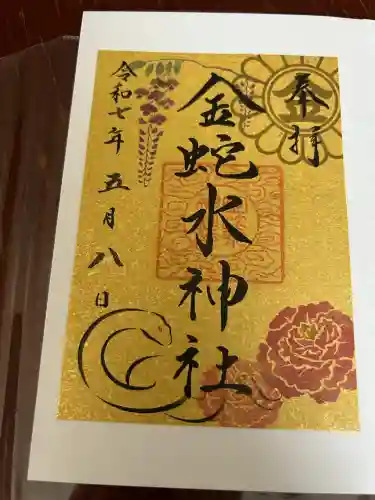 奉拝
金
金蛇水神社
令和七年 五月八日